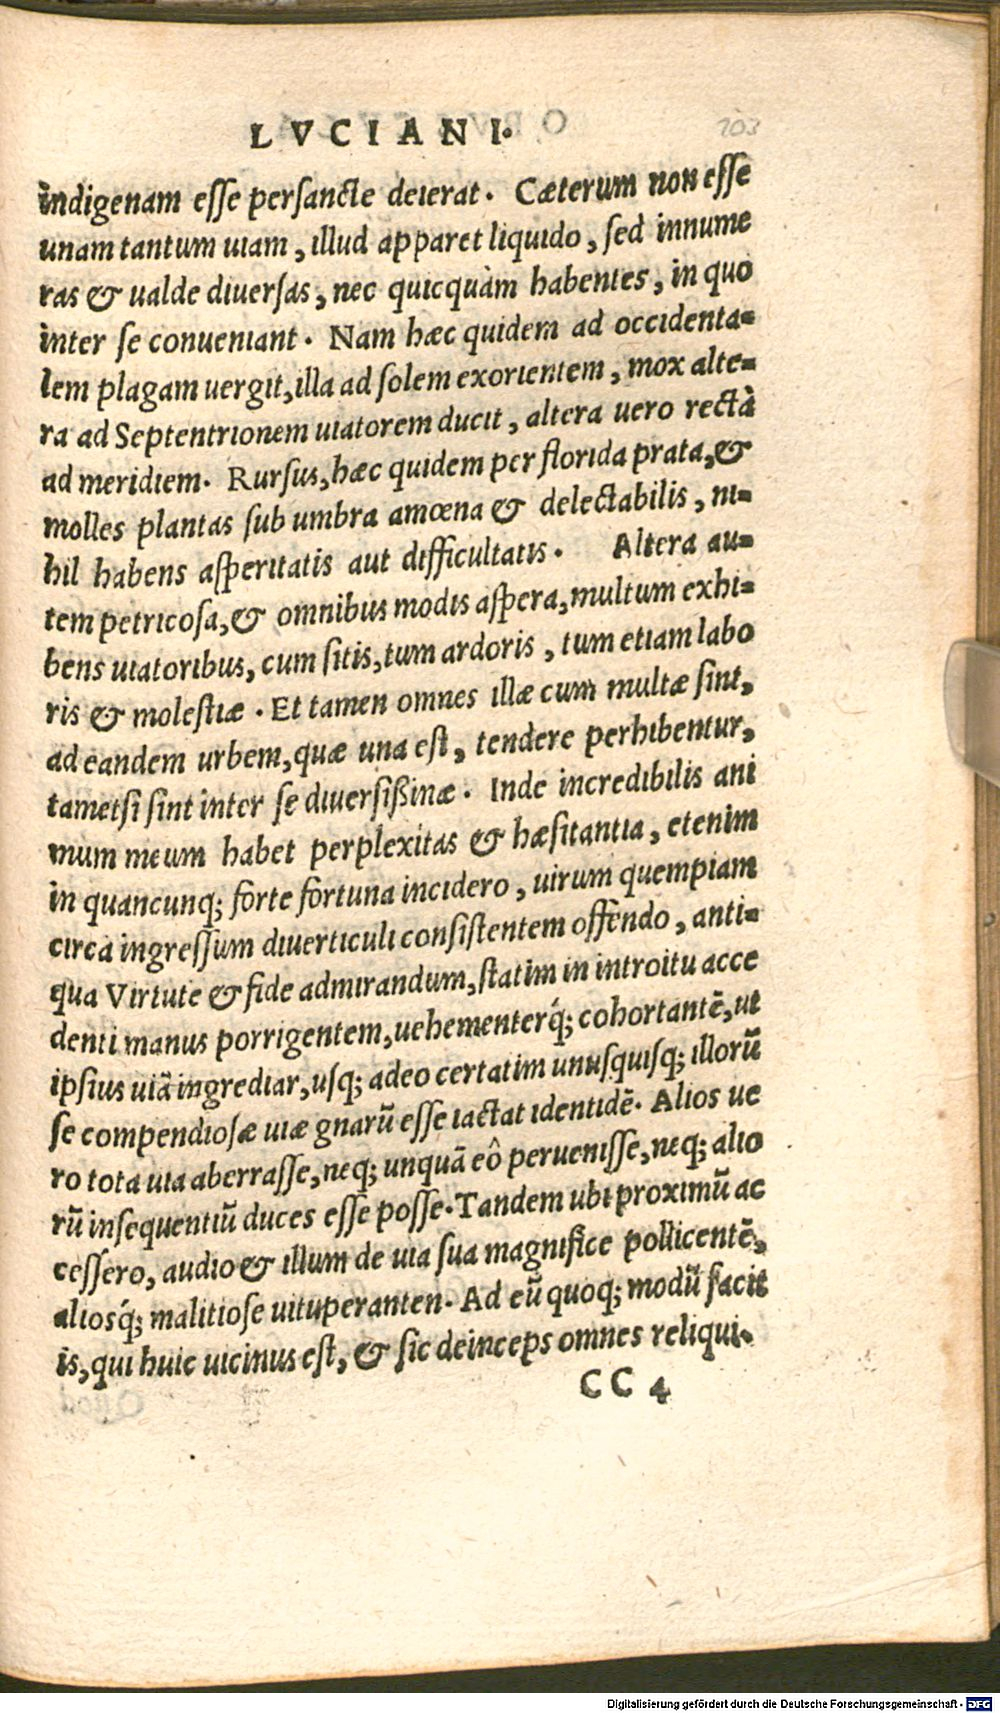 LVCIANI.
103
indigenam esse persancte deierat. Cæterum non esse
unam tantum uiam, illud apparet liquido, sed innume
ras & ualde diuersas, nec quicquàm habentes, in quo
inter se conueniant. Nam hæc quidem ad occidenta-
lem plagam uergit, illa ad solem exorientem, mox alte-
ra ad Septentrionem uiatorem ducit, altera uero rectà
ad meridiem. Rursus, hæc quidem per florida prata, &
molles plantas sub umbra amœna & delectabilis, ni-
hil habens asperitatis aut difficultatis. Altera au-
tem petricosa, & omnibus modis aspera, multum exhi-
bens uiatoribus, cum sitis, tum ardoris, tum etiam labo
ris & molestiæ. Et tamen omnes illæ cum multæ sint,
ad eandem urbem, quæ una est, tendere perhibentur,
tametsi sint inter se diuersißinæ. Inde incredibilis ani
mum meum habet perplexitas & hæsitantia, etenim
in quancunq; forte fortuna incidero, uirum quempiam
circa ingressum diuerticuli consistentem offendo, anti-
qua Virtute & fide admirandum, statim in introitu acce
denti manus porrigentem, uehementerq́; cohortantē, ut
ipsius uiā ingrediar, usq; adeo certatim unusquisq; illorū
se compendiosæ uiæ gnarū esse iactat identidē. Alios ue
ro tota uia aberrasse, neq; unquā eô peruenisse, neq; alio
rū insequentiū duces esse posse. Tandem ubi proximū ac
cessero, audio & illum de uia sua magnifice pollicentē,
aliosq́; malitiose uituperanten. Ad eū quoq; modū facit
is, qui huic uicinus est, & sic deinceps omnes reliqui.
CC 4
Digitalisierung gefördert durch die Deutsche Forschungsgemeinschaft - DFG